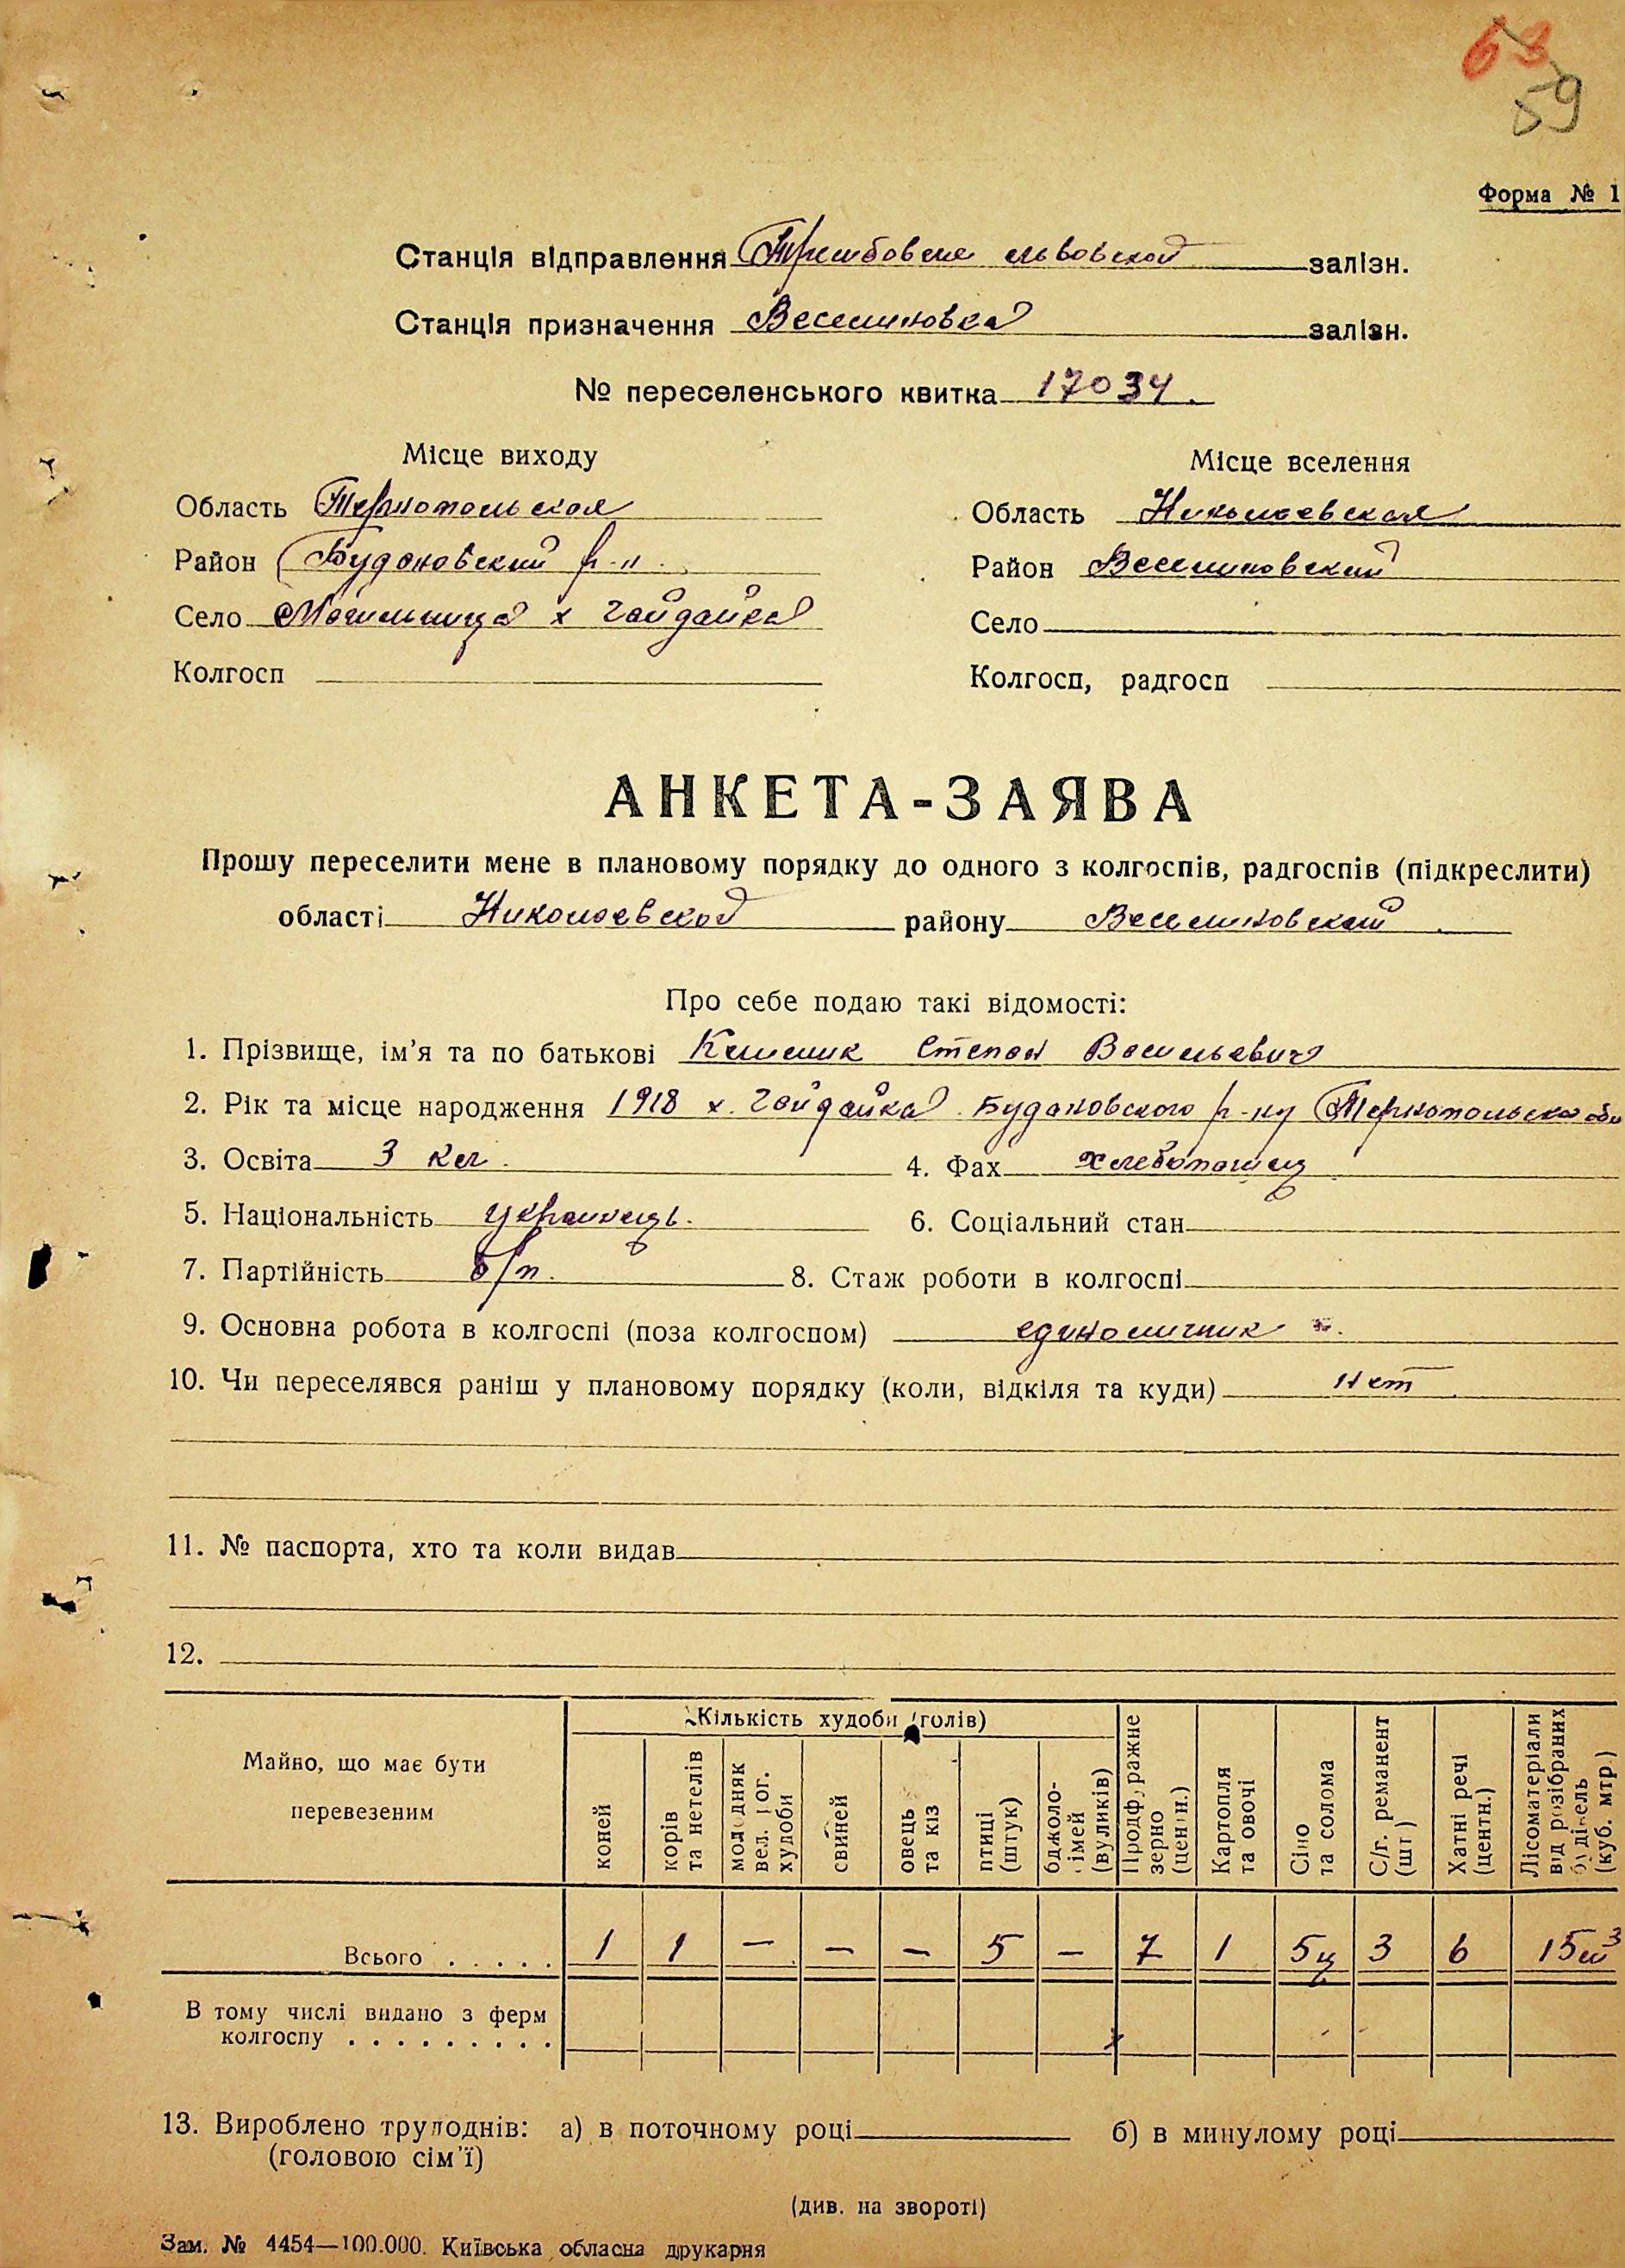 63
59
Форма № 1
Станція відправлення Трембовля львовской залізн.
Станція призначення Веселиновка залізн.
№ переселенського квитка 17034.
Місце виходу
Місце вселення
Область Тернопольская
Область Николаевская
Район Будановский р-н.
Район Веселиновский
Село Могильница х Гайдайка
Село
Колгосп
Колгосп, радгосп
АНКЕТА-ЗАЯВА
Прошу переселити мене в плановому порядку до одного з колгоспів, радгоспів (підкреслити)
області Николаевской району Веселиновский
Про себе подаю такі відомості:
1. Прізвище, ім'я та по батькові Степан Васильевич
2. Рік та місце народження 1918 х. Гайдайка Будановского р-ну Тернопольско обл
3. Освіта 3 кл. 4. Фах хлебопашец
5. Національність українець. 6. Соціальний стан
7. Партійність б/п. 8. Стаж роботи в колгоспі
9. Основна робота в колгоспі (поза колгоспом) единоличник
10. Чи переселявся раніш у плановому порядку (коли, відкіля та куди) нет
11. № паспорта, хто та коли видав
12.
Майно, що має бути перевезеним
Кількість худоби (голів)
коней
корів та нетелів
молодняк вел. рог. худоби
свиней
овець та кіз
птиці (штук)
бджоло-сімей (вуликів)
Продфуражне зерно (центн.)
Картопля та овочі
Сіно та солома
С/г. реманент (шт)
Хатні речі (центн.)
Лісоматеріали від розібраних будівель (куб. мтр)
Всього . . . . . 1 1 — — — 5 — 7 1 5ц 3 6 15м³
В тому числі видано з ферм
колгоспу . . . . . . . . .
13. Вироблено трудоднів: а) в поточному році б) в минулому році
(головою сім'ї)
(див. на звороті)
Зам. № 4454—100.000. Київська обласна друкарня